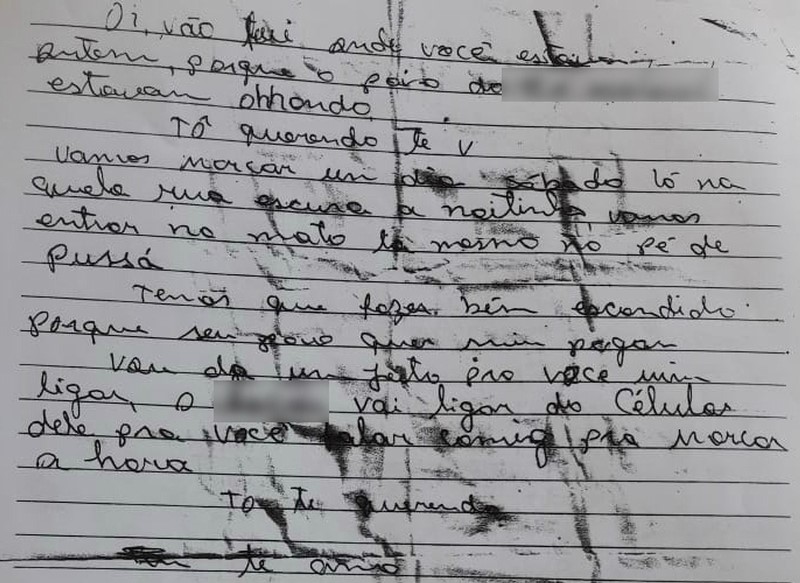 Oi, vão fui onde você estava
ontem, porque o povo do
estavam olhando
Tô querendo te v
vamos marcar um dia sábado lá na
quela rua escura a noitinha, vamos
entrar no mato lá mesmo no pé de
pussá
Temos que fazer bem escondido
porque seu povo quer mim pegar
vou da um jeito pro você mim
ligar, o vai ligar do Célular
dele pra você falar comig pra marcar
a hora
to te querendo
te amo